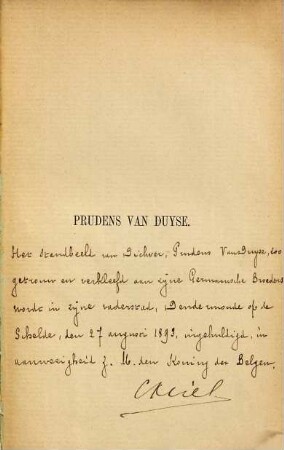 PRUDENS VAN DUYSE.
Het standbeeld van Dichter, Prudens Van Duyse, zoo
getrouw en verkleefd aan zijne Germaansche Broeders
wordt in zijne vaderstad, Dendermonde op de
Schelde, den 27 augusti 1893, ingehuldigd, in
aanweezigheid Z. M. den Koning der Belgen.